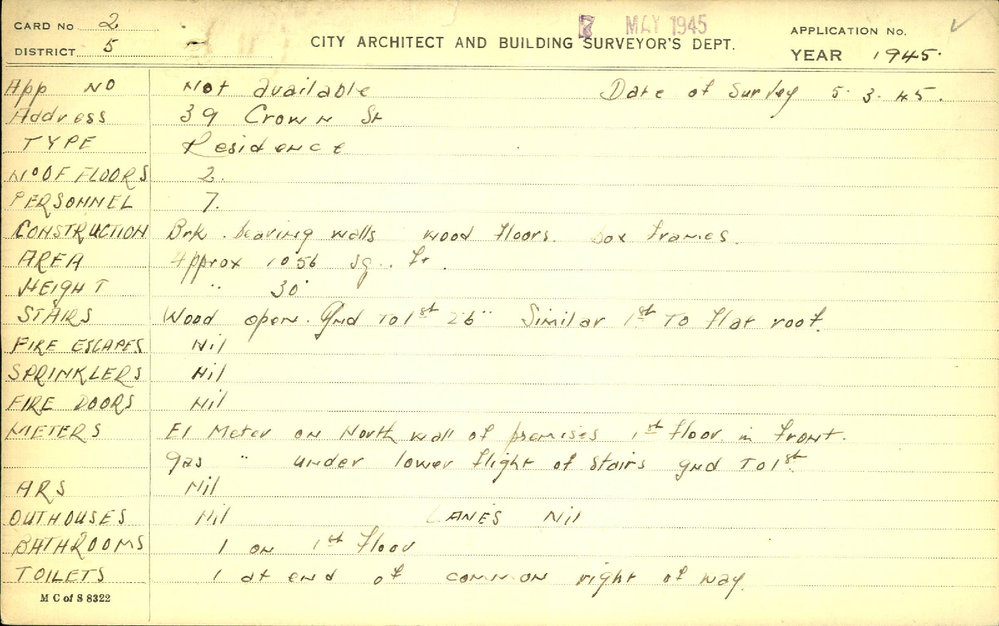 CARD No 2
DISTRICT 5
CITY ARCHITECT AND BUILDING SURVEYOR'S DEPT.
7 MAY 1945
APPLICATION No.
YEAR 1945.
App No Not available Date of Survey 5. 3. 45.
Address 39 Crown St
TYPE Residence
No OF FLOORS 2.
PERSONNEL 7.
CONSTRUCTION Brk. bearing walls wood floors. box frames.
AREA Approx 1056 sq. ft.
HEIGHT " 30'
STAIRS Wood open. Gnd To 1st 2'6" Similar 1st To flat roof.
FIRE ESCAPES Nil
SPRINKLERS Nil
FIRE DOORS Nil
METERS El Meter on North wall of premises 1st floor in front.
Gas " under lower flight of stairs gnd To 1st
ARS Nil
OUTHOUSES Nil LANES Nil
BATHROOMS 1 on 1st floor
TOILETS 1 at end of common right of way.
M C of S 8322